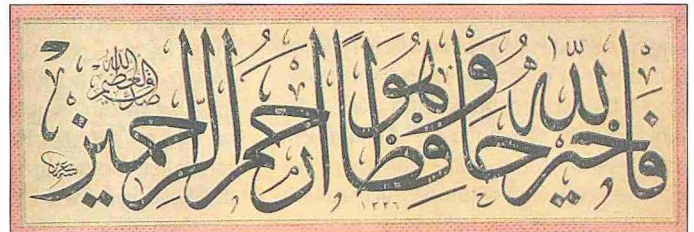 فَاللّٰهُ خَيْرٌ حَافِظًا وَهُوَ أَرْحَمُ الرَّاحِمِينَ
صدق الله العظيم
١٣٣٦